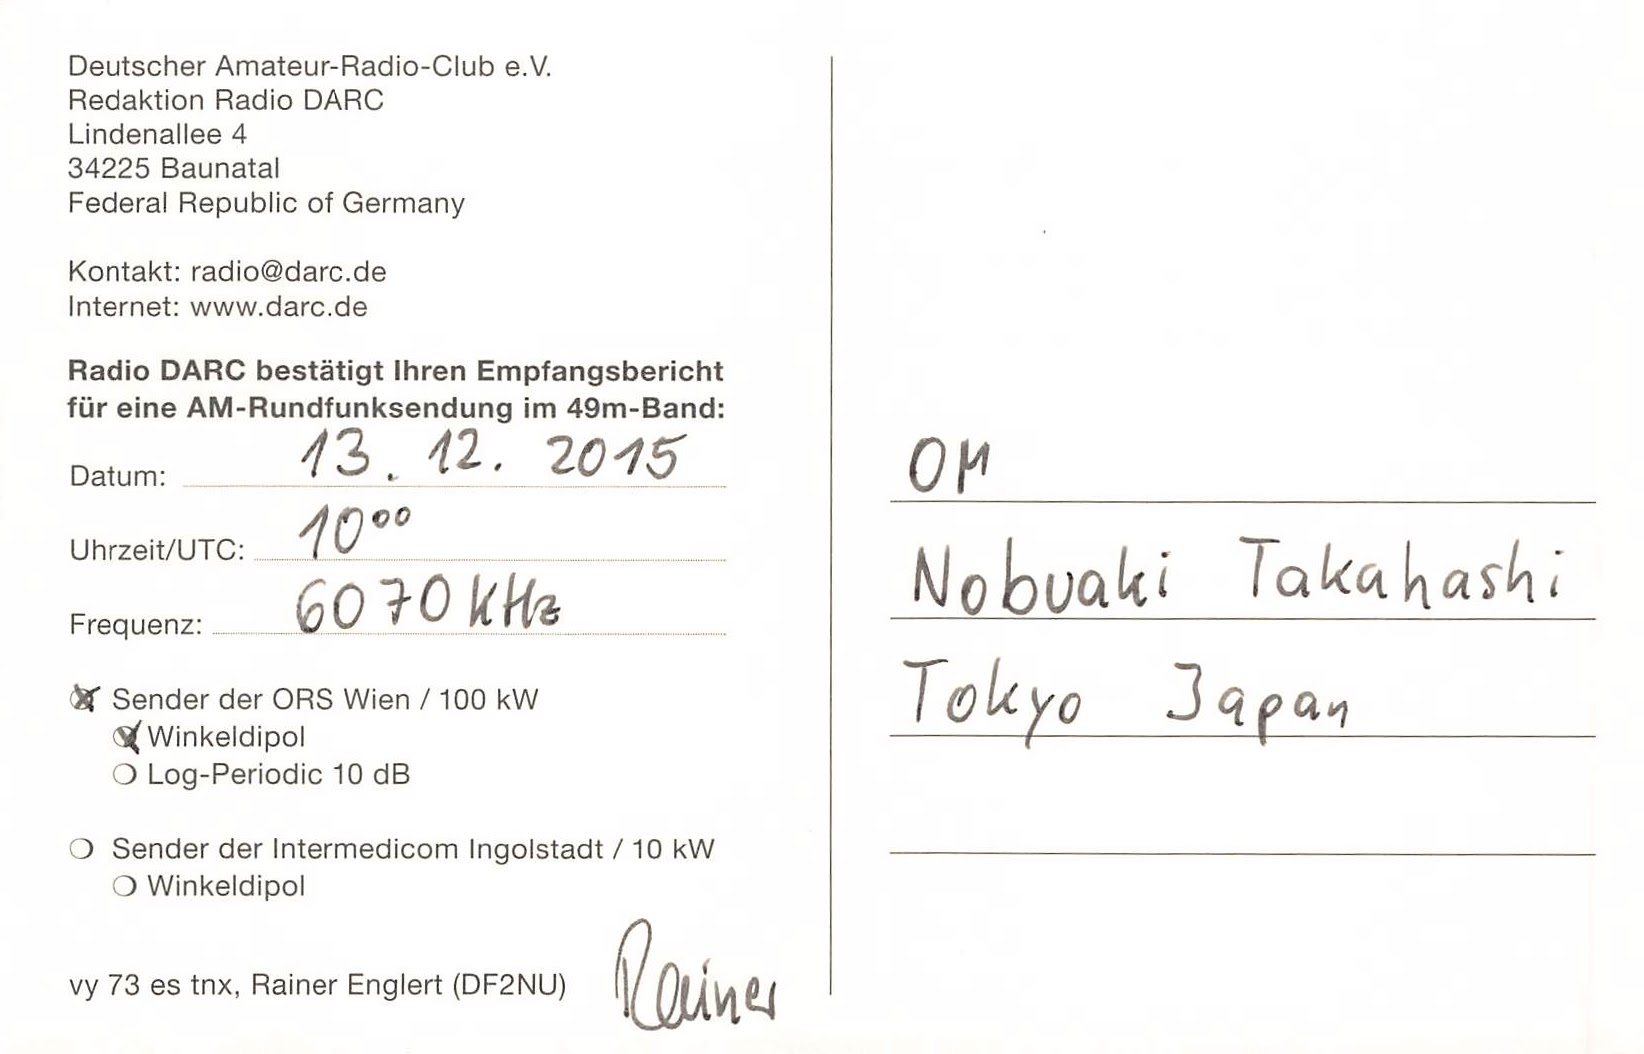 Deutscher Amateur-Radio-Club e.V.
Redaktion Radio DARC
Lindenallee 4
34225 Baunatal
Federal Republic of Germany
Kontakt: radio@darc.de
Internet: www.darc.de
Radio DARC bestätigt Ihren Empfangsbericht
für eine AM-Rundfunksendung im 49m-Band:
Datum: 13. 12. 2015
Uhrzeit/UTC: 10⁰⁰
Frequenz: 6070 kHz
Sender der ORS Wien / 100 kW
Winkeldipol
Log-Periodic 10 dB
Sender der Intermedicom Ingolstadt / 10 kW
Winkeldipol
vy 73 es tnx, Rainer Englert (DF2NU) Rainer
OM
Nobuaki Takahashi
Tokyo Japan